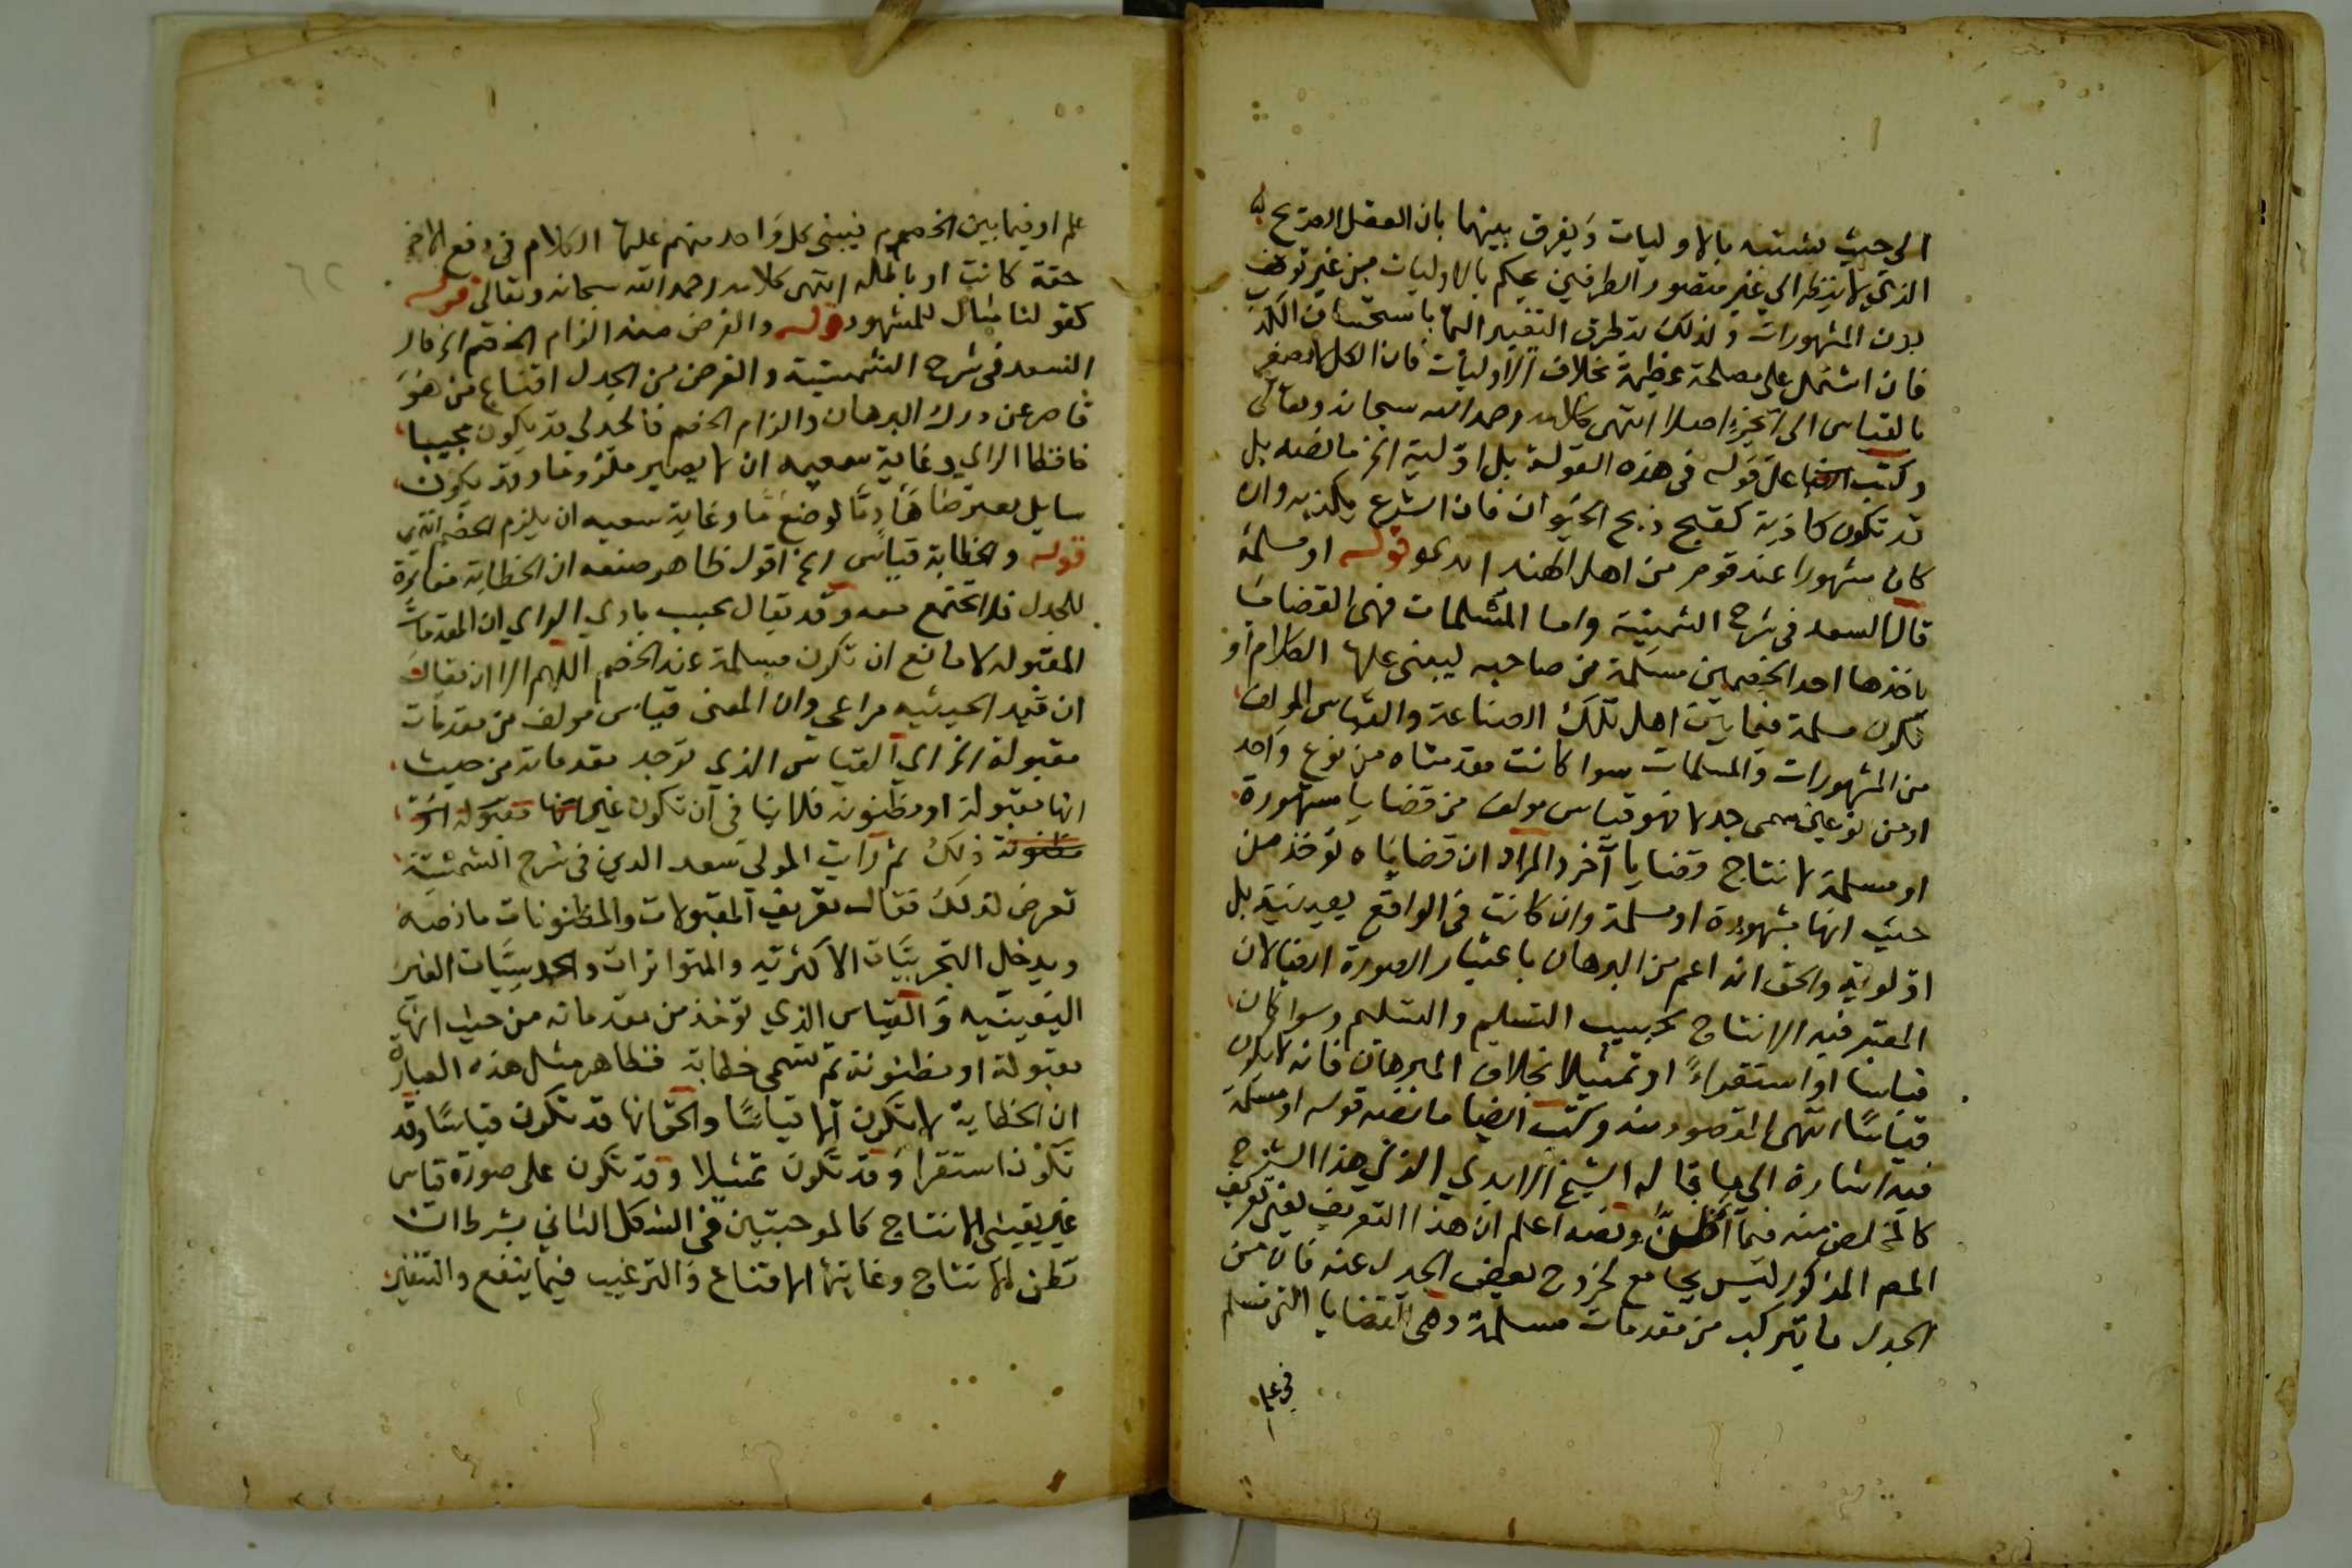 الي حيث تشتبه بالاوليات ويفرق بينهما بان العقل الصريح
الذي لا ينظر الي غير متصور الطرفين يحكم بالاوليات من غير توقف
بدون المشهورات ولذلك يتطرق التغير اليها باستحسان الكذب
فان اشتمل علي مصلحة عظيمة بخلاف الاوليات فان الكل لا يصغر
بالقياس الي الجزء اصلا انتهي كلامه رحمه الله سبحانه وتعالي
وكتب ايضا علي قوله في هذه القولة بل اولية الخ ما نصه بل
قد تكون كاذبة كقبح ذبح الحيوان فان الشرع يكذبه وان
كان مشهورا عند قوم من اهل الهند قوله او مسلمة
قال السعد في شرح الشمسية واما المسلمات فهي القضايا
ياخذها احد الخصمين مسلمة من صاحبه ليبني عليها الكلام او
تكون مسلمة فيما بين اهل تلك الصناعة والقياس المولف
من المشهورات والمسلمات سوا كانت مقدمتاه من نوع واحد
او من نوعين سمي جدلا فهو قياس مولف من قضايا مشهورة
او مسلمة لانتاج قضايا آخر والمراد ان قضاياه توخذ من
حيث انها مشهورة او مسلمة وان كانت في الواقع يقينية بل
اولوية والحق انه اعم من البرهان باعتبار الصورة ايضا لان
المعتبر فيه الانتاج بحسب التسليم والتسلم وسوا كان
قياسا او استقراءً او تمثيلا بخلاف البرهان فانه لا يكون
قياسًا انتهي المقصود منه وكتب ايضا ما نصه قوله او مسلمة
فيه اشارة الي ما قاله الشيخ الابدي الذي هذا الشرح
كالملخص منه فيما اظن ونصه اعلم ان هذا التعريف يعني تعريف
المص المذكور ليس بجامع لخروج بعض الجدل عنه فان من
الجدل ما يتركب من مقدمات مسلمة وهي القضايا التي تسلم
في علم
علم او فيما بين الخصوم فيبني كل واحد منهم عليها الكلام في دفع الاخر
حقة كانت او باطلة انتهي كلامه رحمه الله سبحانه وتعالي قوله
كقولنا مثال للمشهور قوله والغرض منه الزام الخصم الخ قال
السعد في شرح الشمسية والغرض من الجدل اقناع من هو
قاصر عن درك البرهان والزام الخصم فالجدلي قد يكون مجيبا
حافظا لراي وغاية سعيه ان لا يصير ملزوما وقد يكون
سايل معترضا هادمًا لوضع ما وغاية سعيه ان يلزم الخصم انتهي
قوله والخطابة قياس الخ اقول ظاهر صنعه ان الخطابة مغايرة
للجدل فلا تجتمع معه وقد يقال بحسب بادي الراي ان المقدمات
المقبوله لا مانع ان تكون مسلمة عند الخصم اللهم الا ان يقال
ان قيد الحيثيه مراعي وان المعني قياس مولف من مقدمات
مقبولة الخ اي القياس الذي توجد مقدماته من حيث
انها مقبولة او مظنونه فلا ينافي ان تكون غير
ذلك ثم رايت المولي سعد الدين في شرح الشمسية
تعرض لذلك فقال تعريف المقبولات والمظنونات ما نصه
ويدخل التجربيات الاكثرية والمتواترات والحدسيات الغير
اليقينيه والقياس الذي توخذ من مقدماته من حيث انها
مقبولة او مظنونة ثم تسمي خطابة فظاهر مثل هذه العبارة
ان الخطابة لا تكون الا قياسًا والحق انها قد تكون قياسًا وقد
تكون استقرا وقد تكون تمثيلا وقد تكون علي صورة قياس
غير يقيني الانتاج كالموجبتين في الشكل الثاني بشرط ان
تظن الانتاج وغايتها الاقناع والترغيب فيما ينفع والتنفير